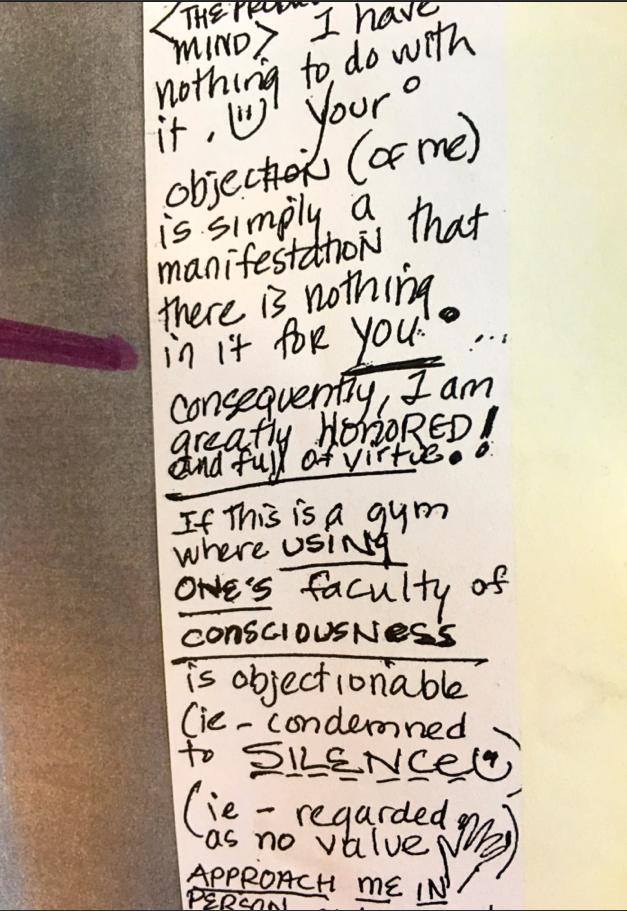 <THE PRODU
MIND> I have
nothing to do with
it. Your
objection (of me)
is simply a
manifestation that
there is nothing
in it for you. ...
consequently, I am
greatly HONORED!
and full of virtue.
If This is a gym
where USING
ONE'S faculty of
CONSCIOUSNESS
is objectionable
(ie - condemned
to SILENCE)
(ie - regarded
as no value)
APPROACH ME IN
PERSON